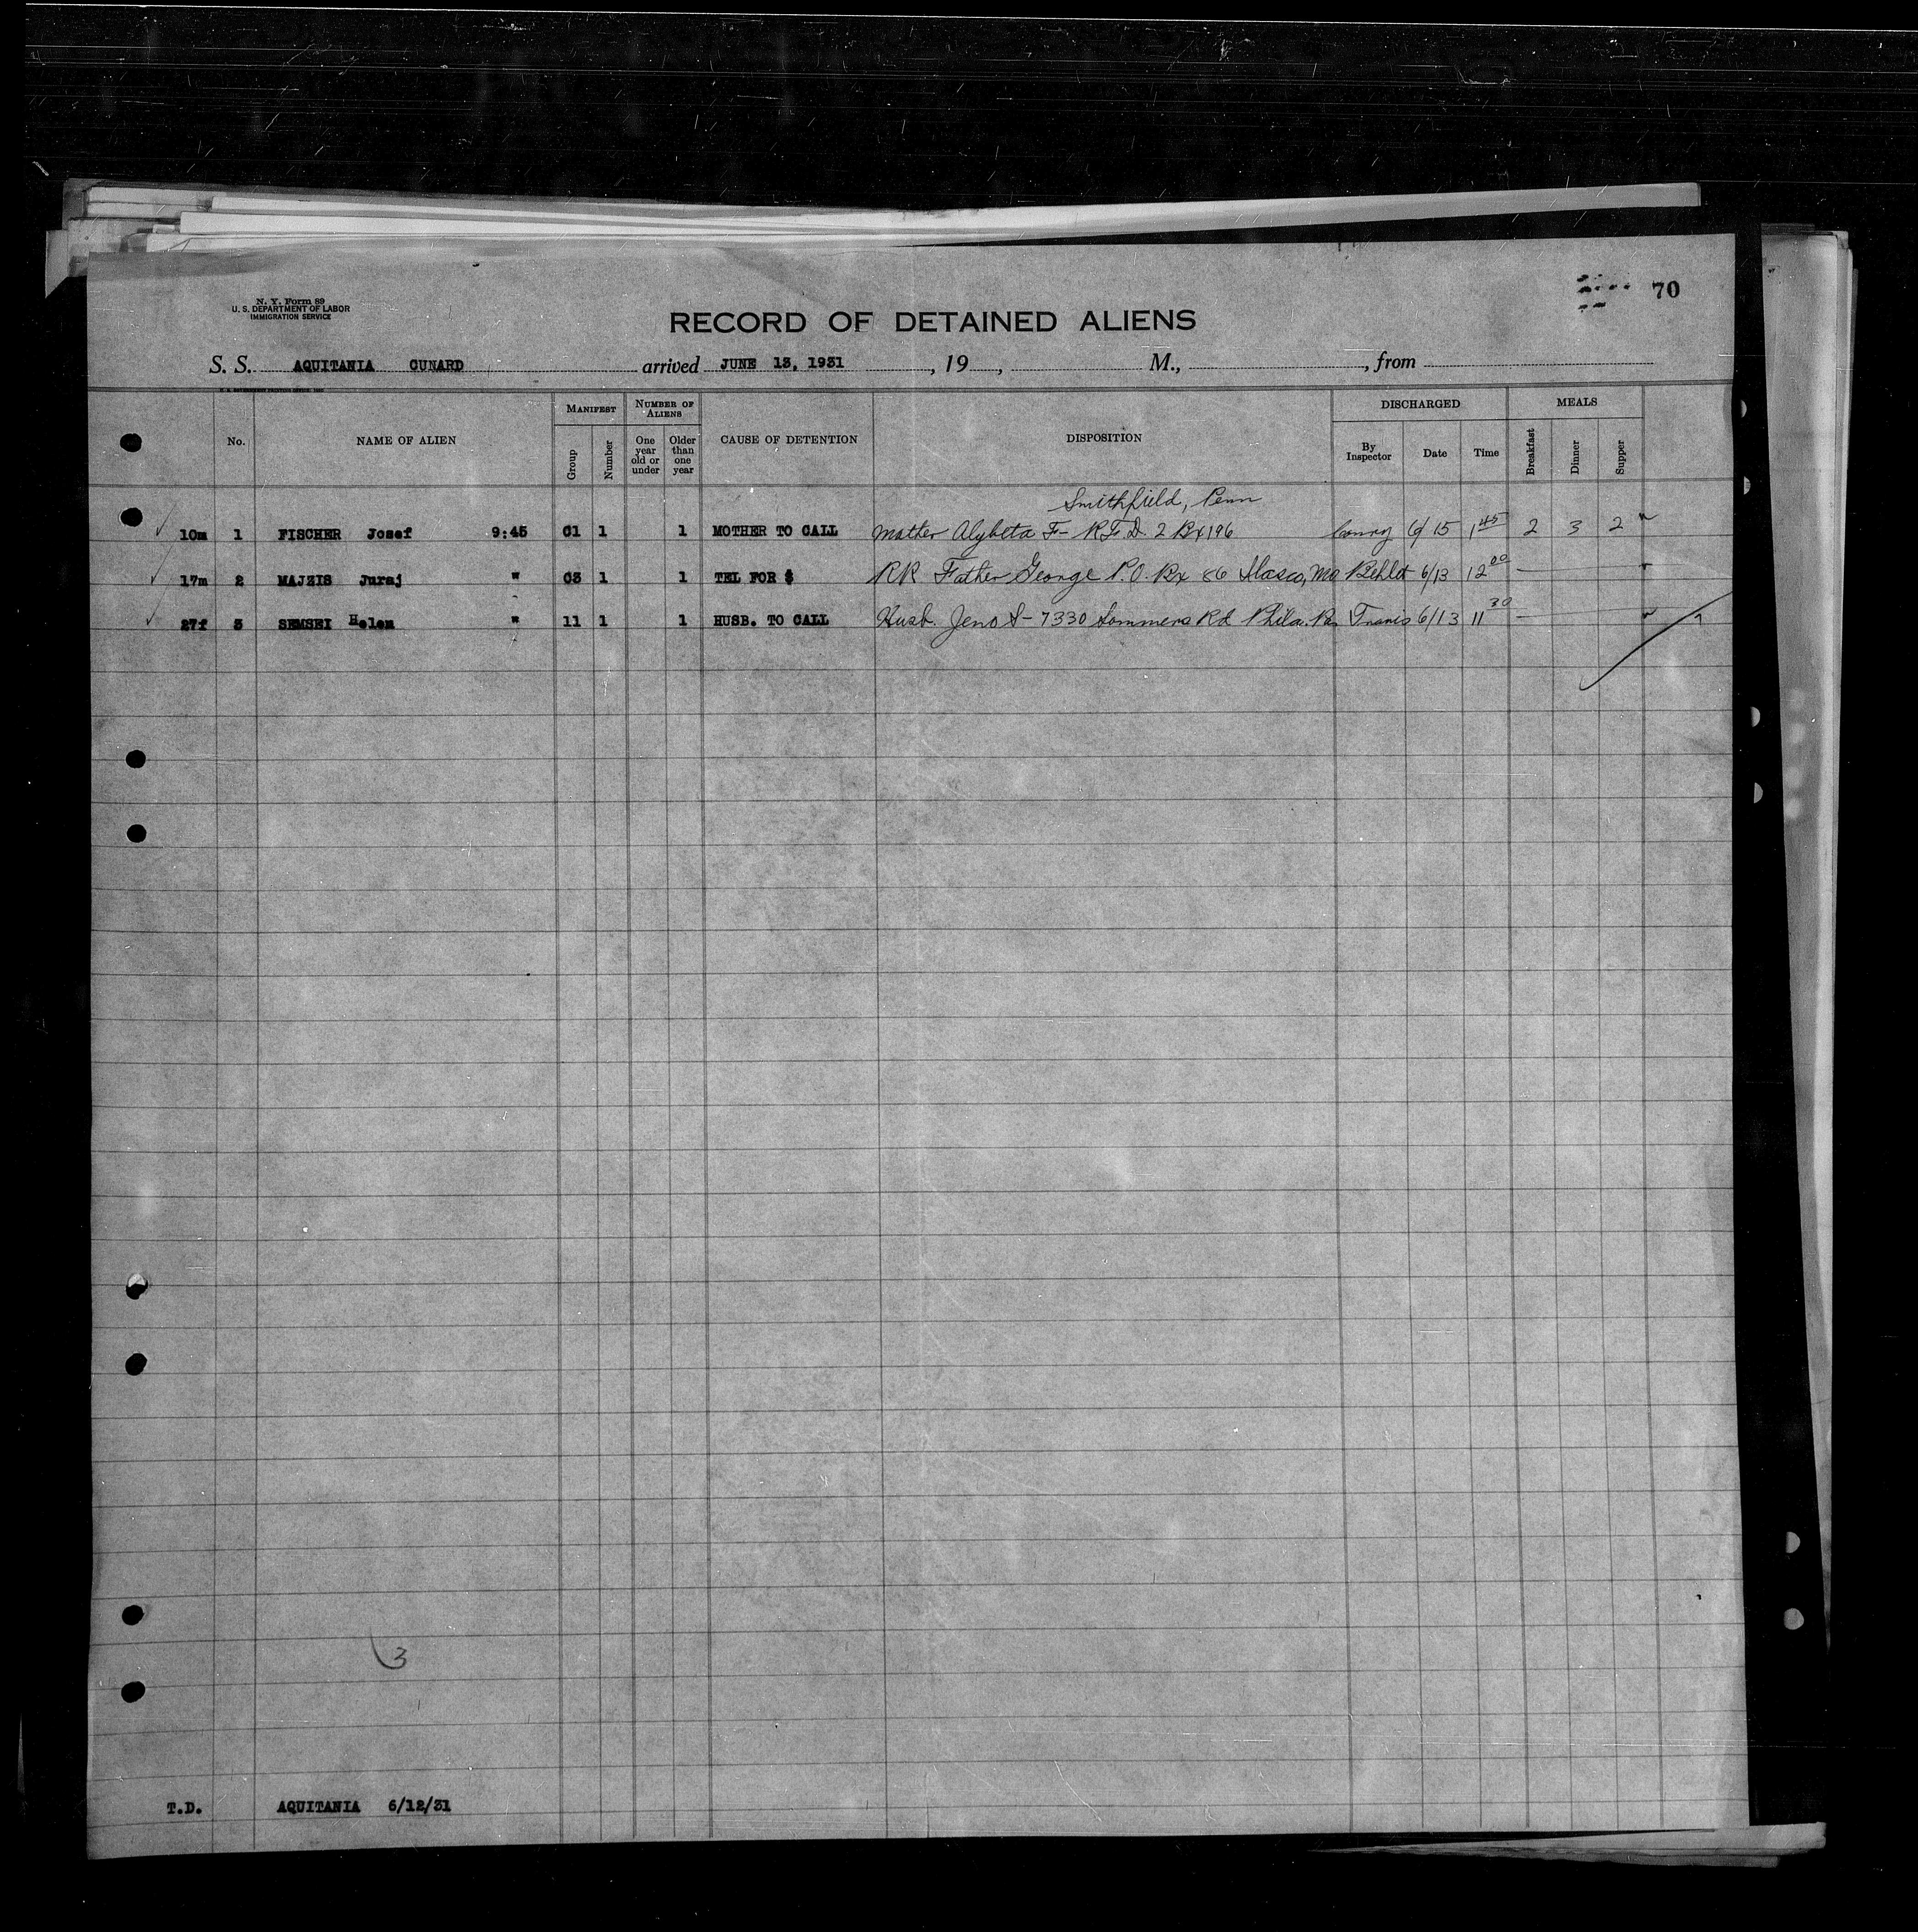 70
N. Y. Form 89
U. S. DEPARTMENT OF LABOR
IMMIGRATION SERVICE
RECORD OF DETAINED ALIENS
S. S. AQUITANIA CUNARD arrived JUNE 13, 1931, 19 , M., , from
No. NAME OF ALIEN MANIFEST Group Number NUMBER OF ALIENS One year old or under Older than one year CAUSE OF DETENTION DISPOSITION DISCHARGED By Inspector Date Time MEALS Breakfast Dinner Supper
Smithfield, Penn
10m 1 FISCHER Josef 9:45 C1 1 1 MOTHER TO CALL Mother Alybeta F- R.F.D. 2 Bx 196 6/15 1 45 2 3 2
17m 2 MAJZIS Juraj " C3 1 1 TEL FOR $ RR Father George P.O. Bx 86 Ilasco, Mo 6/13 12 00 —
27f 3 SEMSEI Helen " 11 1 1 HUSB. TO CALL Husb. Jeno S- 7330 Sommers Rd Phila. Pa Travis 6/13 11 30 —
3
T.D. AQUITANIA 6/12/31